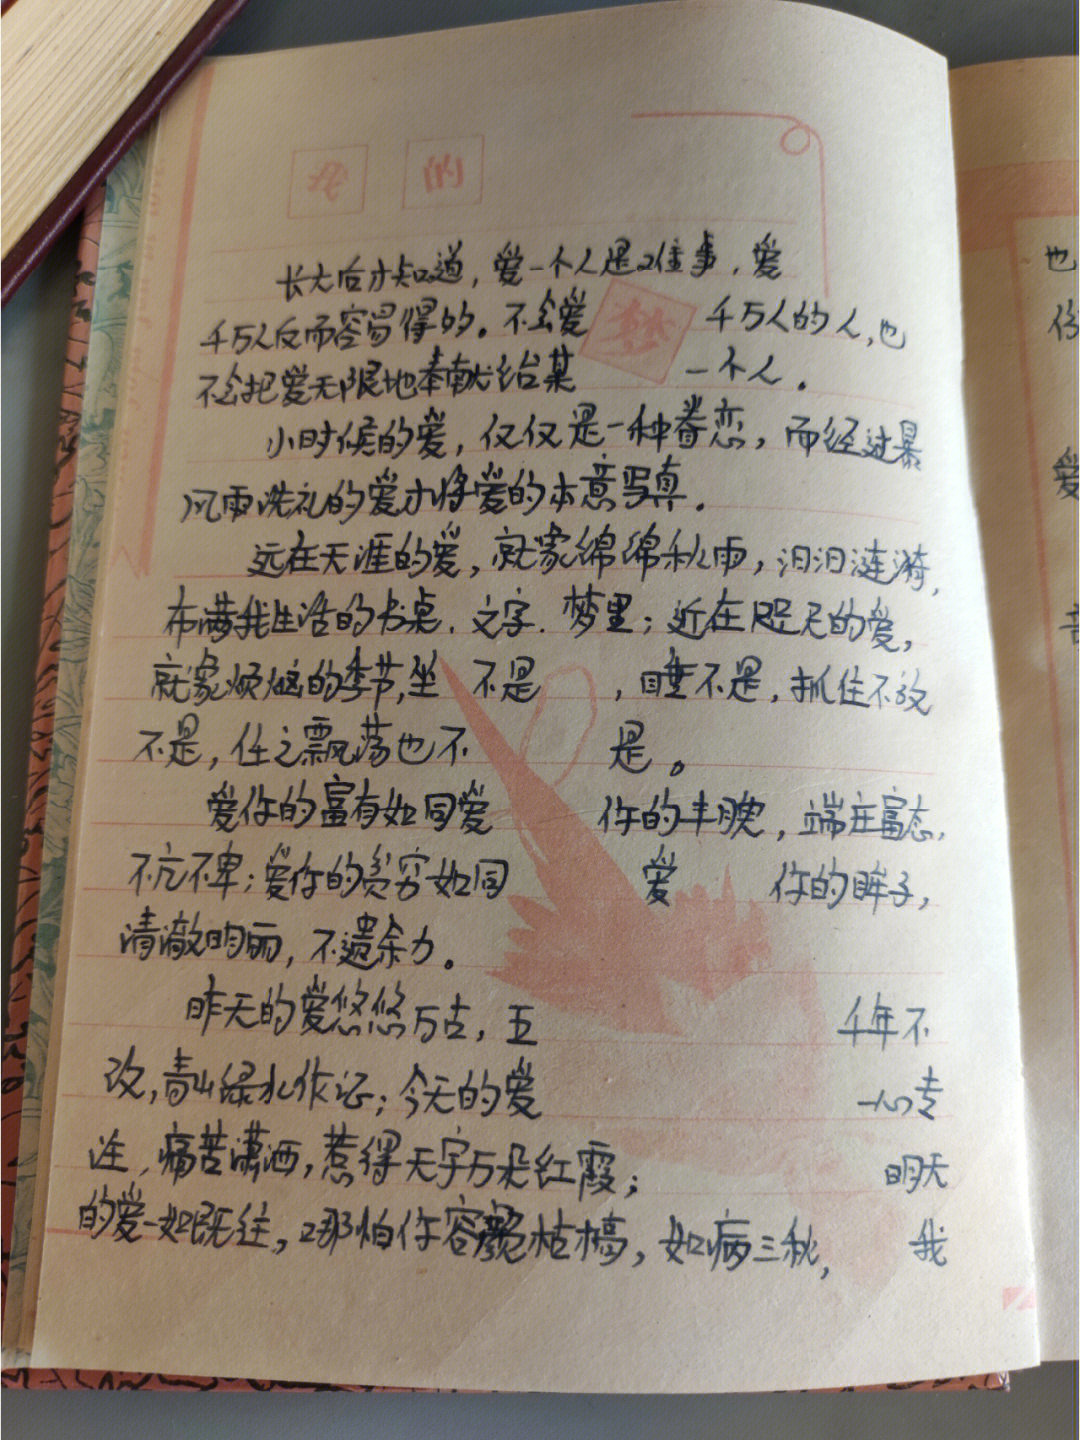 我的
梦
长大后才知道，爱一个人是难事，爱
千万人反而容易得的。不会爱千万人的人，也
不会把爱无限地奉献给某一个人。
小时候的爱，仅仅是一种眷恋，而经过暴
风雨洗礼的爱才将爱的本意写真。
远在天涯的爱，就象绵绵秋雨，汩汩涟漪，
布满我生活的书桌．文字．梦里；近在咫尺的爱，
就象烦恼的季节，坐不是，睡不是，抓住不放
不是，任之飘荡也不是。
爱你的富有如同爱你的丰腴，端庄富态，
不亢不卑；爱你的贫穷如同爱你的眸子，
清澈明丽，不遗余力。
昨天的爱悠悠万古，五千年不
改，青山绿水作证；今天的爱一心专
注，痛苦潇洒，惹得天宇万朵红霞；明天
的爱一如既往，哪怕你容颜枯槁，如病三秋，我
也
爱